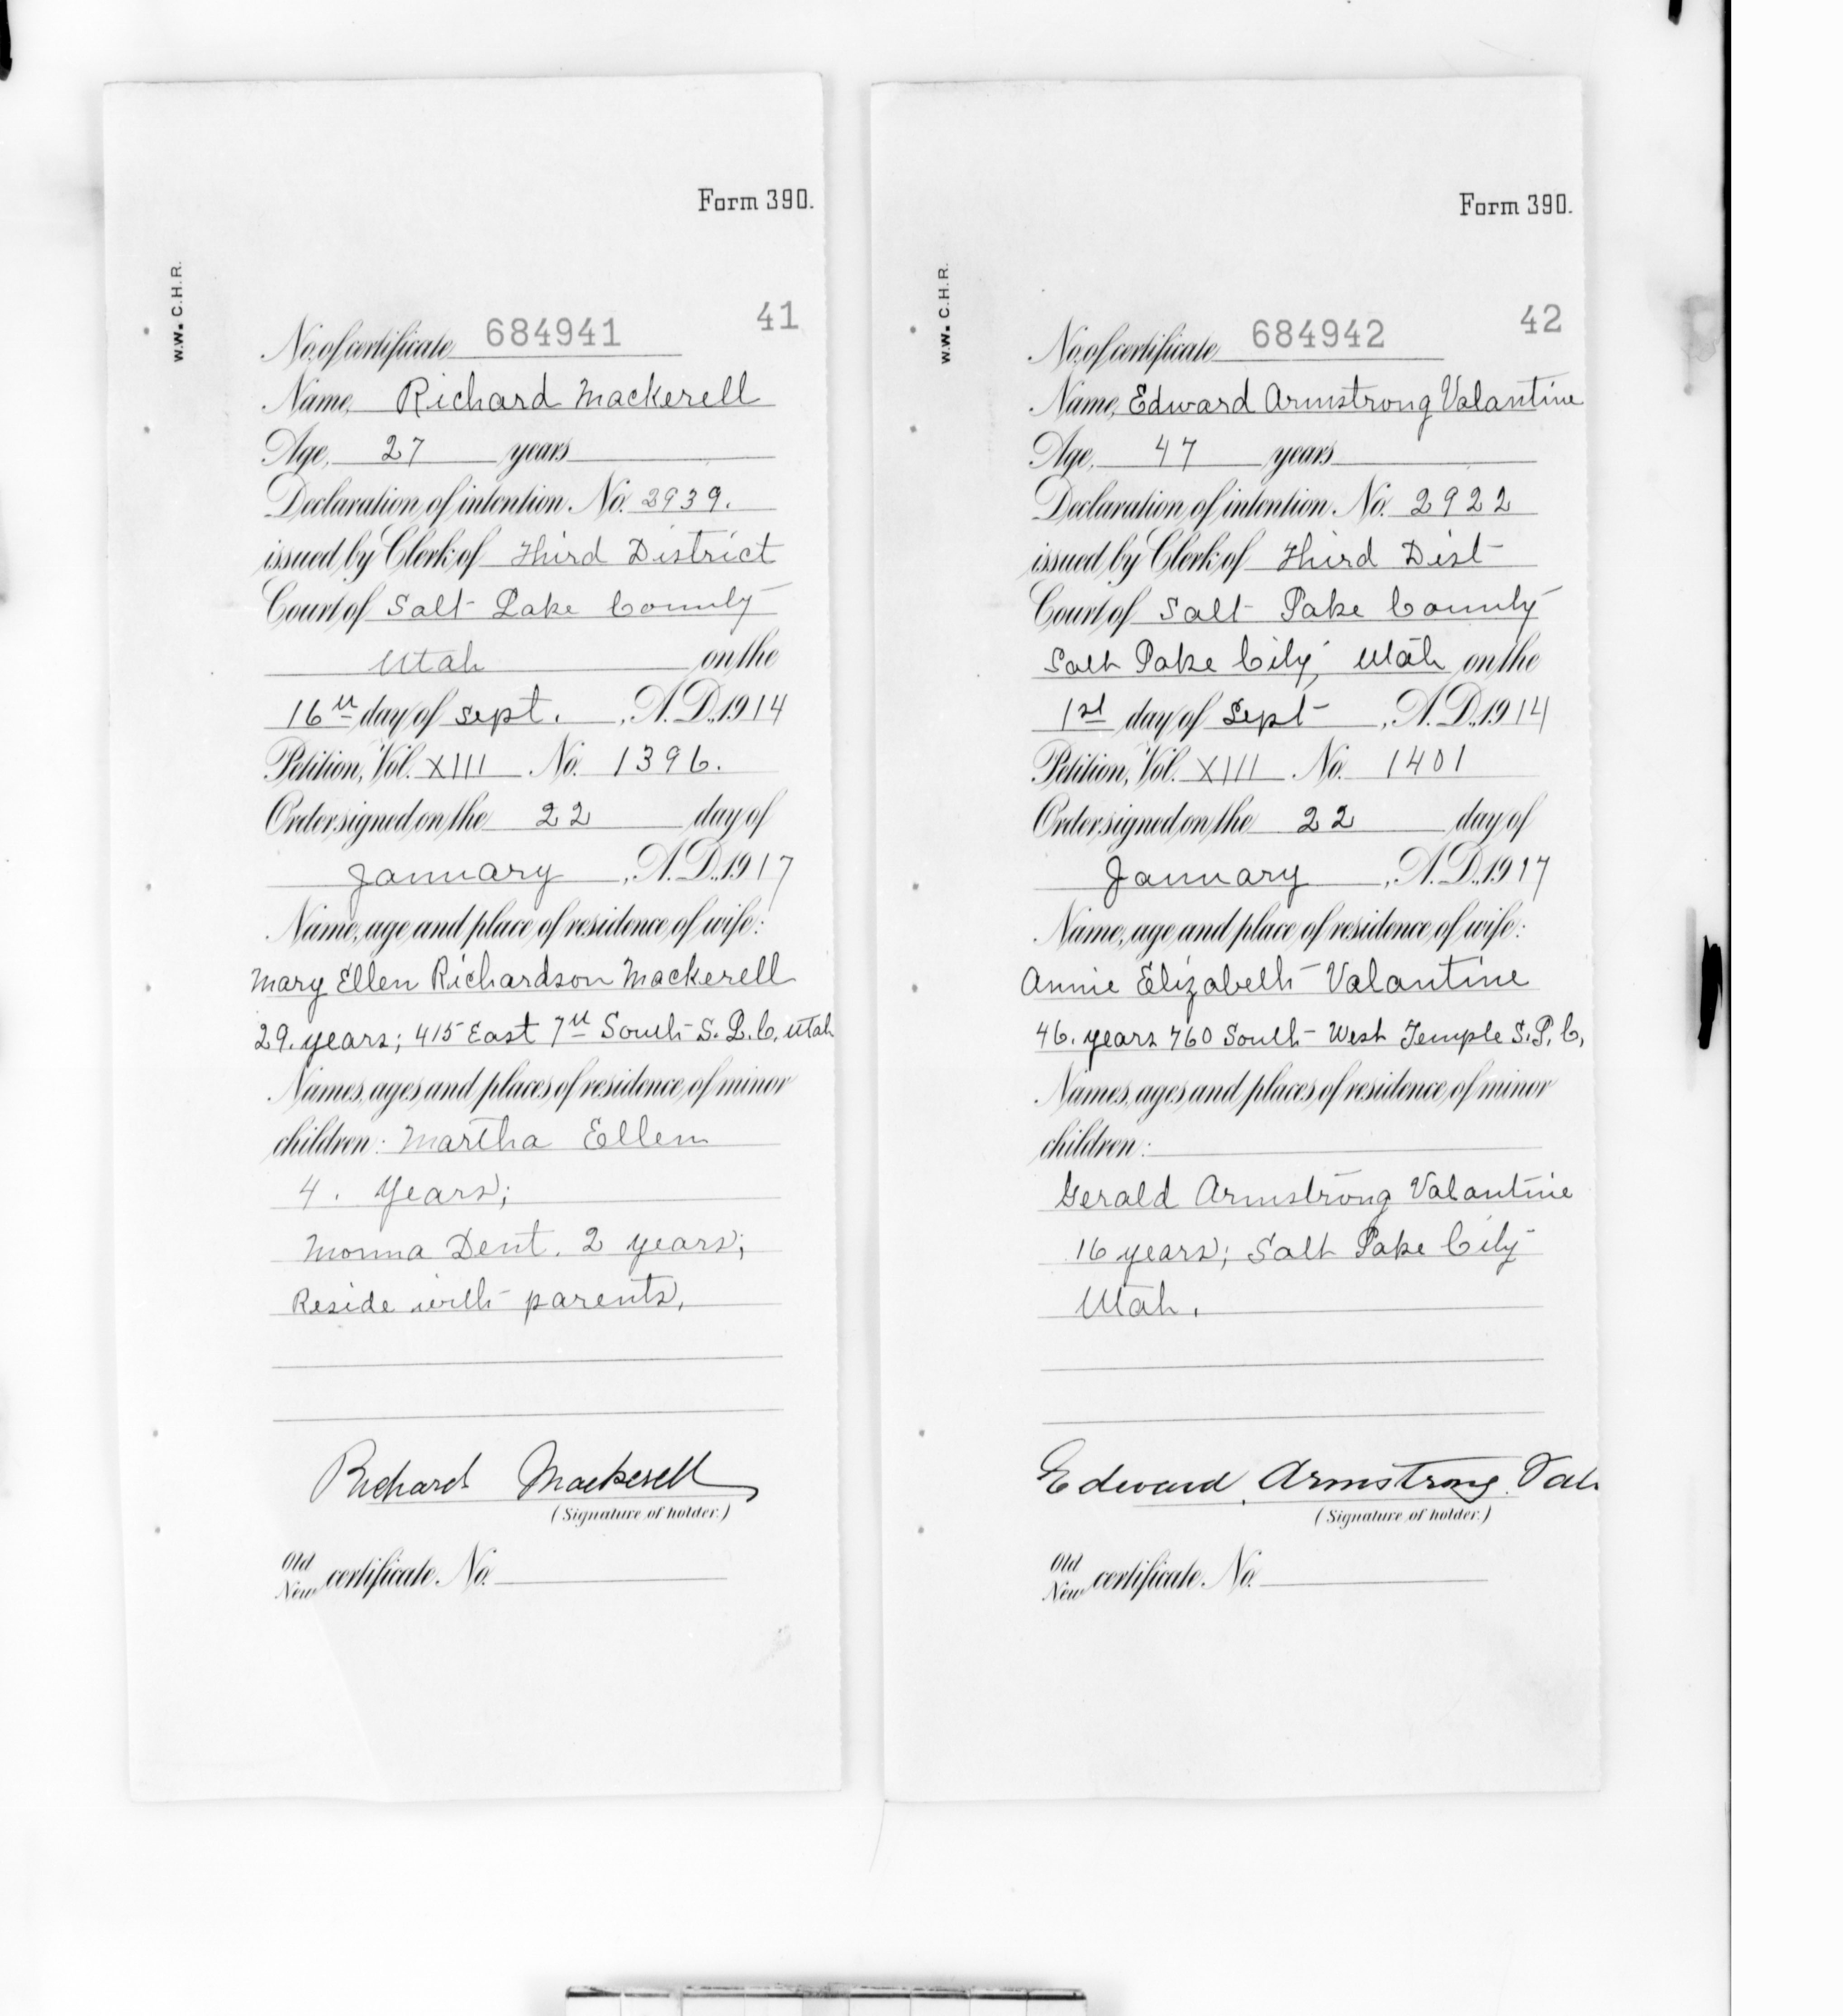 Form 390.
W.W. C.H.R.
41
No. of certificate 684941
Name, Richard Mackerell
Age, 27 years
Declaration of intention, No. 2939.
issued by Clerk of Third District
Court of Salt Lake County
Utah on the
16th day of Sept. , A. D. 1914
Petition, Vol. XIII No. 1396.
Order signed on the 22 day of
January , A. D. 1917
Name, age and place of residence of wife:
Mary Ellen Richardson Mackerell
29. years; 415 East 7th South S. L. C. Utah
Names, ages and places of residence of minor
children: Martha Ellen
4. Years;
Monna Dent. 2 years;
Reside with parents,
Richard Mackerell
(Signature of holder.)
Old
New certificate. No.
Form 390.
W.W. C.H.R.
42
No. of certificate 684942
Name, Edward Armstrong Valantine
Age, 47 years
Declaration of intention, No. 2922
issued by Clerk of Third Dist
Court of Salt Lake County
Salt Lake City, Utah on the
1st day of Sept , A. D. 1914
Petition, Vol. XIII No. 1401
Order signed on the 22 day of
January , A. D. 1917
Name, age and place of residence of wife:
Annie Elizabeth Valantine
46. years 760 South West Temple S. L. C,
Names, ages and places of residence of minor
children:
Gerald Armstrong Valantine
16 years; Salt Lake City
Utah.
Edward Armstrong Val
(Signature of holder.)
Old
New certificate. No.